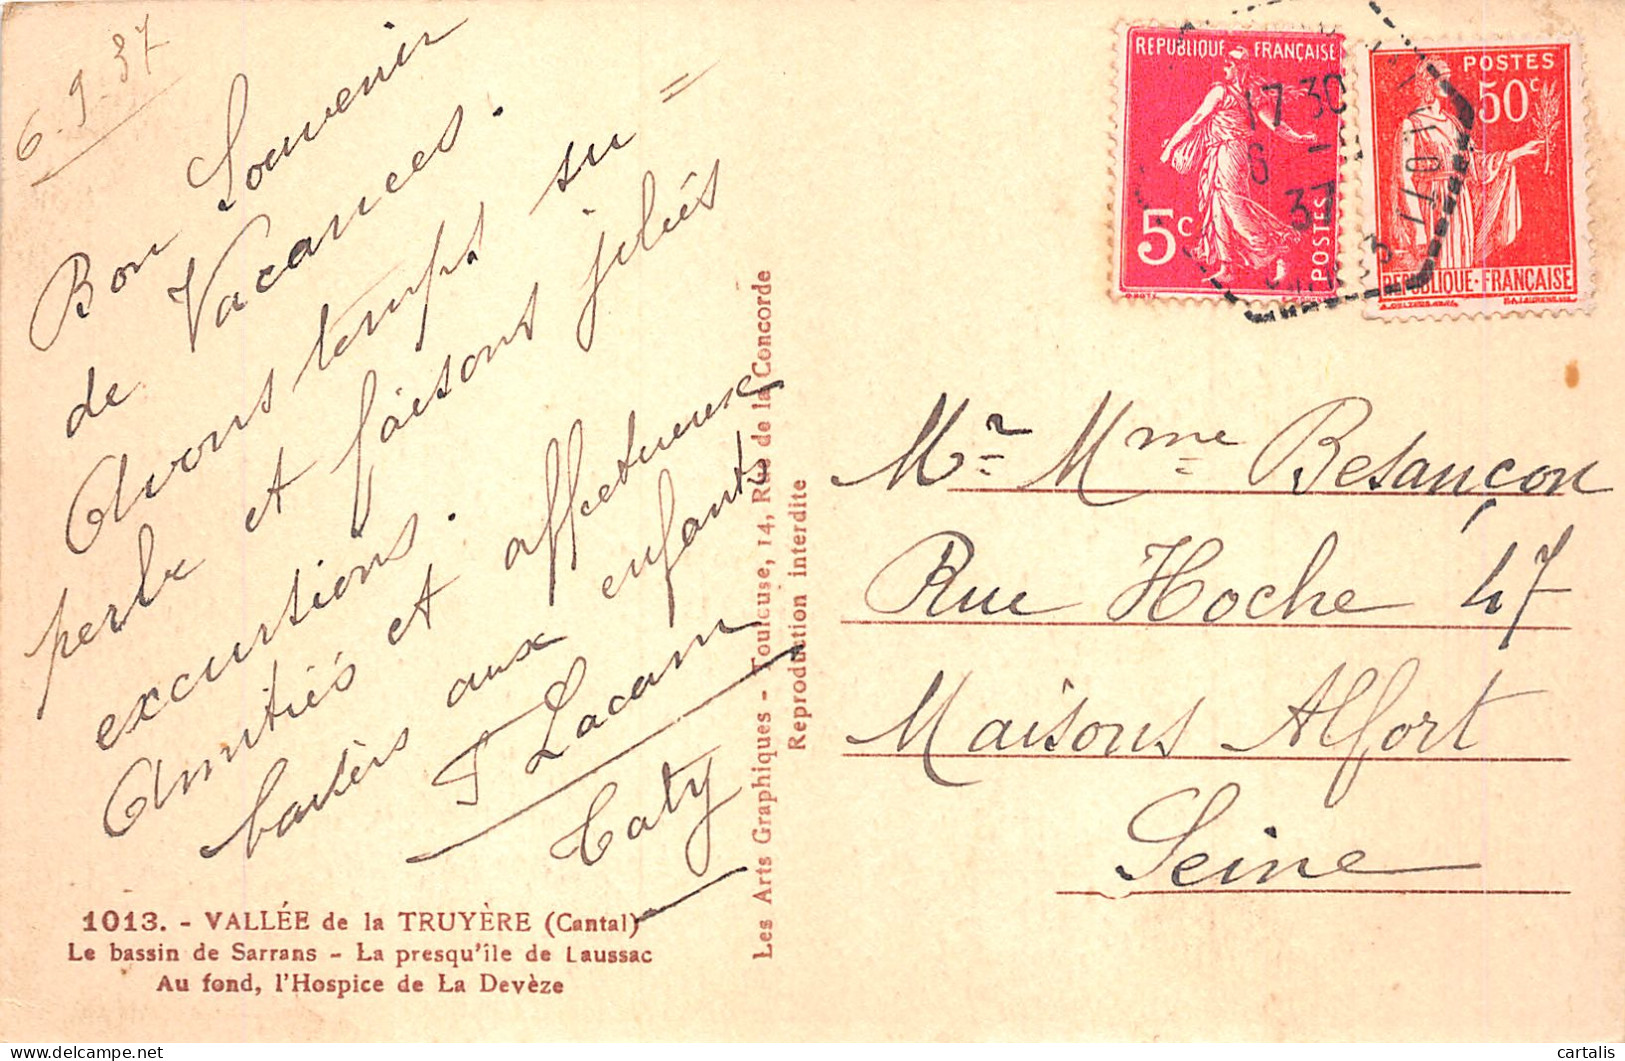 6-9-37
Bon Souvenir
de Vacances.
Avons temps su=
perbe et faisons jolies
excurtions.
Amitiés et affectueuse
baisers aux enfants
Lacam
Caty
1013. - VALLÉE de la TRUYÈRE (Cantal)
Le bassin de Sarrans - La presqu'île de Laussac
Au fond, l'Hospice de La Devèze
Les Arts Graphiques - Toulouse, 14, Rue de la Concorde
Reproduction interdite
REPUBLIQUE FRANÇAISE
5c
POSTES
POSTES
50c
REPUBLIQUE-FRANÇAISE
17 30
6 -
37
Mr Mme Besançon
Rue Hoche 47
Maisons Alfort
Seine
cartalis